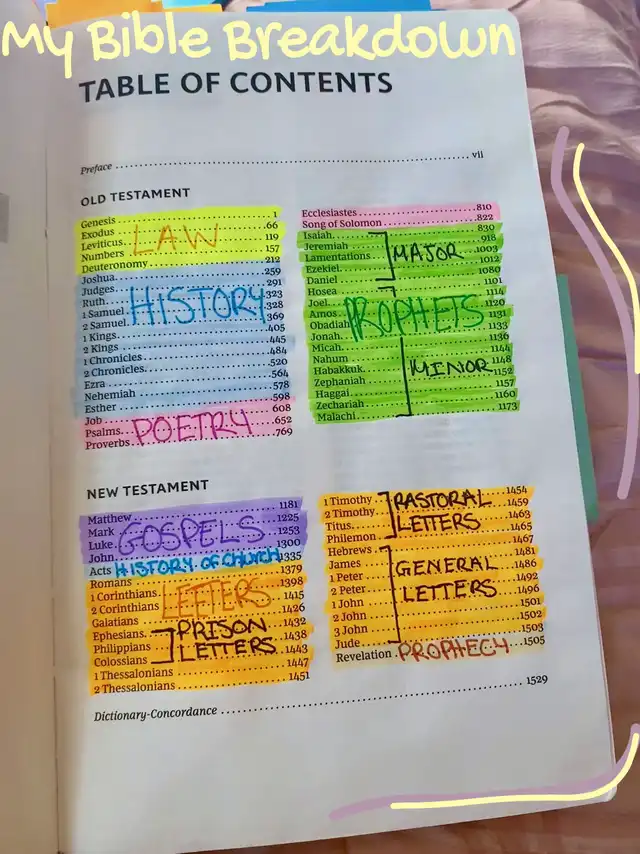 My Bible Breakdown
TABLE OF CONTENTS
Preface vii
OLD TESTAMENT
Genesis 1
Exodus 66
Leviticus 119
Numbers 157
Deuteronomy 212
LAW
Joshua 259
Judges 291
Ruth 323
1 Samuel 328
2 Samuel 369
1 Kings 405
2 Kings 445
1 Chronicles 484
2 Chronicles 520
Ezra 564
Nehemiah 578
Esther 598
HISTORY
Job 608
Psalms 652
Proverbs 769
POETRY
Ecclesiastes 810
Song of Solomon 822
Isaiah 830
Jeremiah 918
Lamentations 1003
Ezekiel 1012
Daniel 1080
MAJOR
Hosea 1101
Joel 1114
Amos 1120
Obadiah 1131
Jonah 1133
Micah 1136
Nahum 1144
Habakkuk 1148
Zephaniah 1152
Haggai 1157
Zechariah 1160
Malachi 1173
PROPHETS
MINOR
NEW TESTAMENT
Matthew 1181
Mark 1225
Luke 1253
John 1300
GOSPELS
Acts 1335
HISTORY OF Church
Romans 1379
1 Corinthians 1398
2 Corinthians 1415
Galatians 1426
Ephesians 1432
Philippians 1438
Colossians 1443
1 Thessalonians 1447
2 Thessalonians 1451
LETTERS
PRISON
LETTERS
1 Timothy 1454
2 Timothy 1459
Titus 1463
Philemon 1465
PASTORAL
LETTERS
Hebrews 1467
James 1481
1 Peter 1486
2 Peter 1492
1 John 1496
2 John 1501
3 John 1502
Jude 1503
GENERAL
LETTERS
Revelation 1505
PROPHECY
Dictionary-Concordance 1529